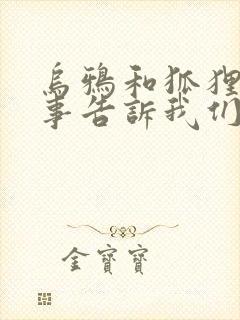 烏鴉和狐狸
事告訴我们
金寶寶